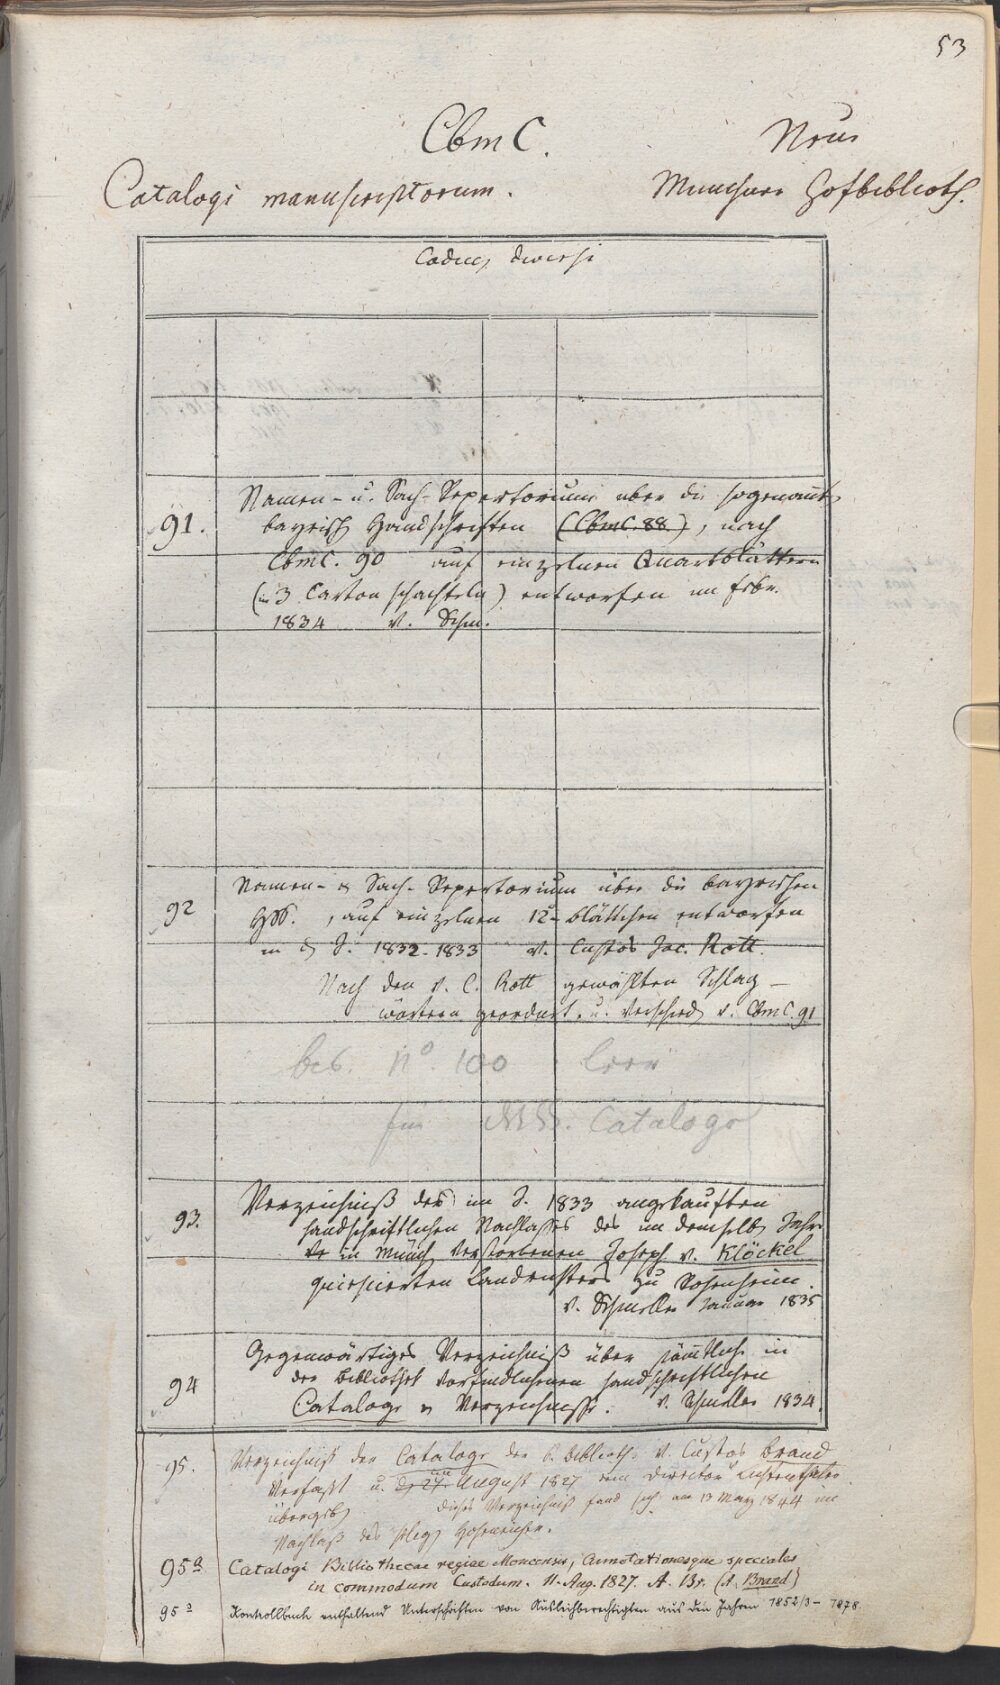 53
Cbm C. Neue
Catalogi manuscriptorum. Münchner Hofbiblioth.
Codices diversi
Namen- u. Sach-Repertorium über die sogenannt
91. bayrisch Handschriften (Cbm C. 88), nach
Cbm C. 90 auf einzelnen Quartblättern
(in 3 Carton schachteln) entworfen im Febr.
1834 v. Schm.
Namen- u Sach-Repertorium über die bayrischen
92 HSS., auf einzelnen 12°-blättchen entworfen
in d J. 1832-1833 v. Custos Jac. Rott.
Nach den v. C. Rott gewählten Schlag-
wörtern geordnet, u. verschied v. Cbm C. 91
bes. N°. 100 leer
für MSS. Cataloge
Verzeichniß des im J. 1833 angekauften
93. handschriftlichen Nachlasses des in demselb Jah-
re in Münch verstorbenen Joseph v. Klöckel
quiescierten Landrichters zu Rosenheim.
v. Schmeller Januar 1835
Gegenwärtiges Verzeichniß über sämmtliche in
94 der Bibliothek vorfindlichen handschriftlichen
Cataloge u Verzeichnisse. v. Schmeller 1834.
95. Verzeichniß der Cataloge der k. Biblioth. v. Custos Brand
verfaßt u. d 27. August 1827 dem Director Lichtenthaler
übergeb. Dieses Verzeichniß fand sich am 13 März 1844 im
Nachlaß des
95a Catalogi Bibliothecae regiae Monacensis, Annotationesque speciales
in commodum Custodum. 11. Aug. 1827. A. Br. (A. Brand)
95² Kontrollbuch enthaltend Unterschriften von Ausleihberechtigten aus den Jahren 1852/3 - 1878.